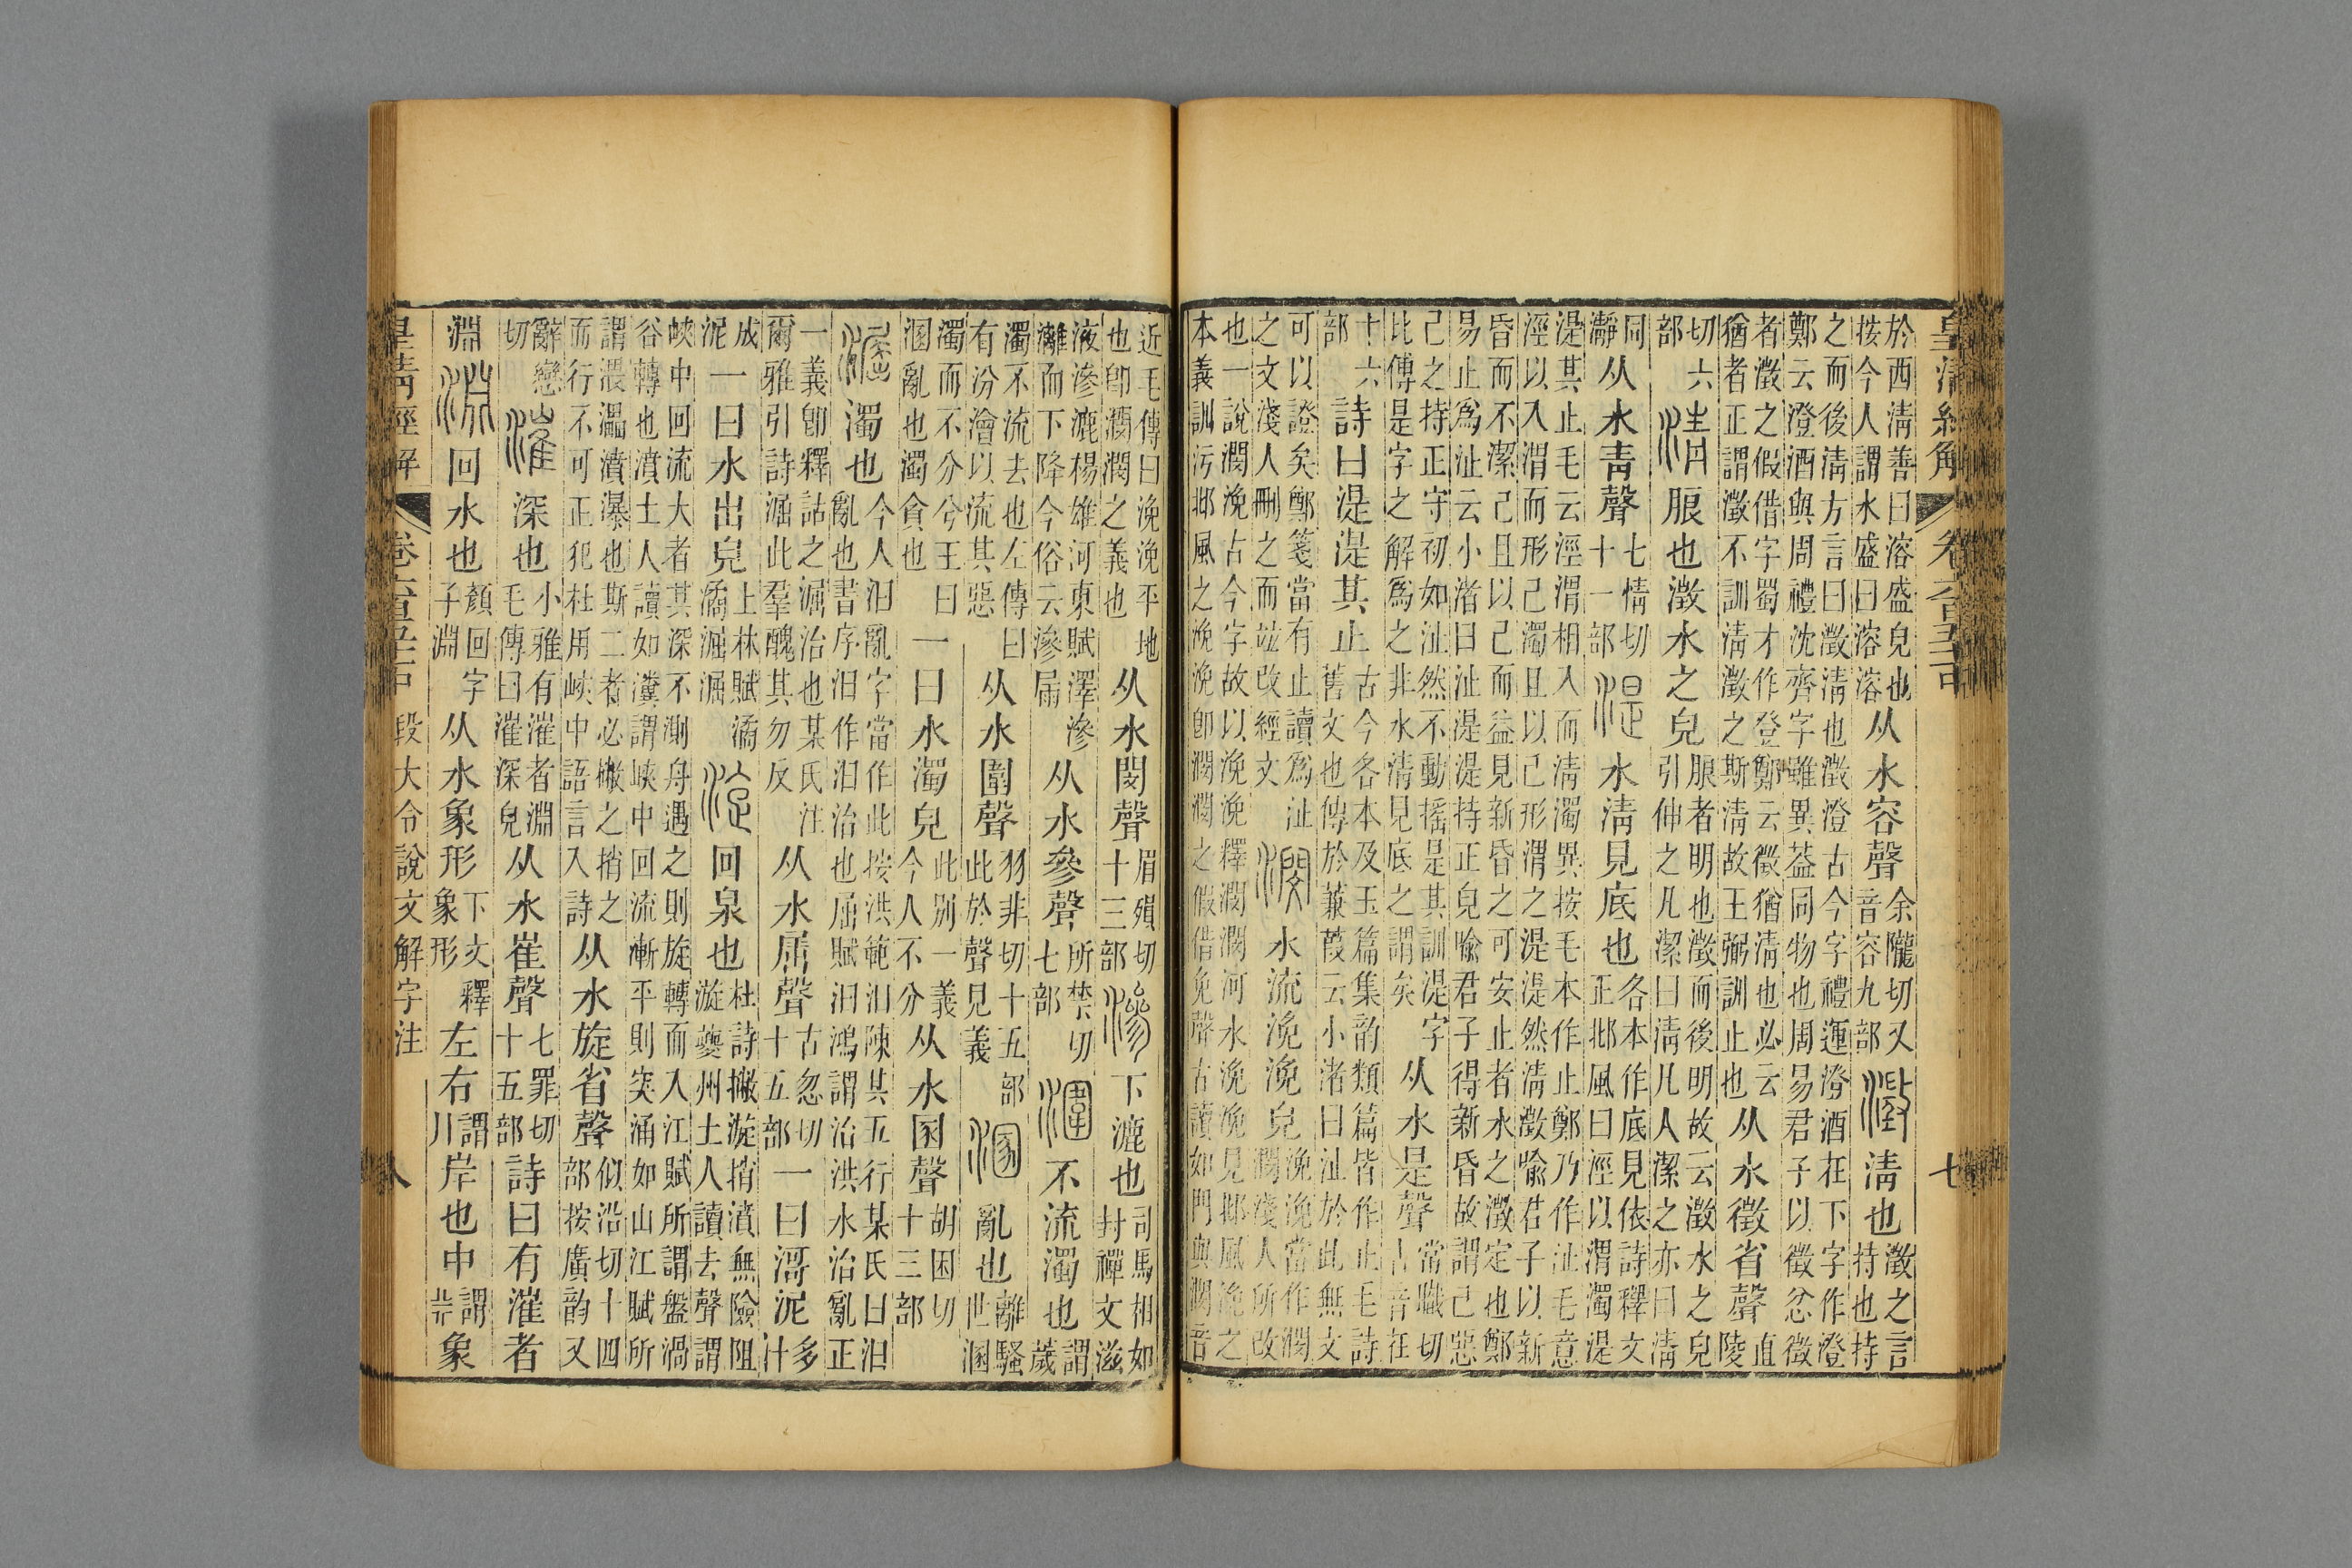 皇清經解 七
於西淸善曰溶盛皃也
按今人謂水盛曰溶溶
从水容聲
余隴切又
音容九部
澂淸也
澂之言
持也持
之而後淸方言曰澂淸也澂澄古今字禮運澄酒在下字作澄
鄭云澄酒與周禮沈齊字雖異葢同物也周易君子以徵忿徵
者澂之假借字蜀才作登鄭云徵猶淸也必云
猶者正謂澂不訓淸澂之斯淸故王弼訓止也
从水徵省聲
直
陵
切六
部
淸朖也澂水之皃
朖者明也澂而後明故云澂水之皃
引伸之凡潔曰淸凡人潔之亦曰淸
同
瀞
从水靑聲
七情切
十一部
湜水淸見底也
各本作底見依詩釋文
正邶風曰涇以渭濁湜
湜其止毛云涇渭相入而淸濁異按毛本作止鄭乃作沚毛意
涇以入渭而形己濁且以己形渭之湜湜然淸澂喻君子以新
昏而不潔己且以己而益見新昏之可安止者水之澂定也鄭
易止爲沚云小渚曰沚湜湜持正皃喻君子得新昏故謂己惡
己之持正守初如沚然不動搖是其訓湜字
比傳是字之解爲之非水淸見底之謂矣
从水是聲
常職切
古音在
十六
部
詩曰湜湜其止
古今各本及玉篇集韵類篇皆作止毛詩
舊文也傳於蒹葭云小渚曰沚於此無文
可以證矣鄭箋當有止讀爲沚
之文淺人刪之而竝改經文
潣水流浼浼皃
浼浼當作潣
潣淺人所改
也一說潣浼古今字故以浼浼釋潣潣河水浼浼見邶風浼之
本義訓污邶風之浼浼卽潣潣之假借免聲古讀如門與潣音
近毛傳曰浼浼平地
也卽潣潣之義也
从水閔聲
眉殞切
十三部
滲下漉也
司馬相如
封禪文滋
液滲漉楊雄河東賦澤滲
灕而下降今俗云滲屚
从水參聲
所禁切
七部
潿不流濁也
謂薉
濁不流去也左傳曰
有汾澮以流其惡
从水圍聲
羽非切十五部
此於聲見義
溷亂也
離騷
世溷
濁而不分兮王曰
溷亂也濁貪也
一曰水濁皃
此別一義
今人不分
从水圂聲
胡困切
十三部
淈濁也
今人汩亂字當作此按洪範汩陳其五行某氏曰汩
亂也書序汩作汩治也屈賦汩鴻謂治洪水治亂正
一義卽釋詁之淈治也某氏注
爾雅引詩淈此羣醜其勿反
从水屈聲
古忽切
十五部
一曰滒泥
汁多
成
泥
一曰水出皃
上林賦潏
潏淈淈
淀回泉也
杜詩撇漩捎濆無險阻
漩夔州土人讀去聲謂
峽中回流大者其深不測舟遇之則旋轉而入江賦所謂盤渦
谷轉也濆土人讀如瀵謂峽中回流漸平則突涌如山江賦所
謂渨㵽濆瀑也斯二者必撇之捎之
而行不可正犯杜用峽中語言入詩
从水旋省聲
似沿切十四
部按廣韵又
辭戀
切
漼深也
小雅有漼者淵
毛傳曰漼深皃
从水崔聲
七罪切
十五部
詩曰有漼者
淵淵回水也
顏回字
子淵
从水象形
下文釋
象形
左右
謂
岸也中
謂
象
皇清經解 段大令說文解字注 八